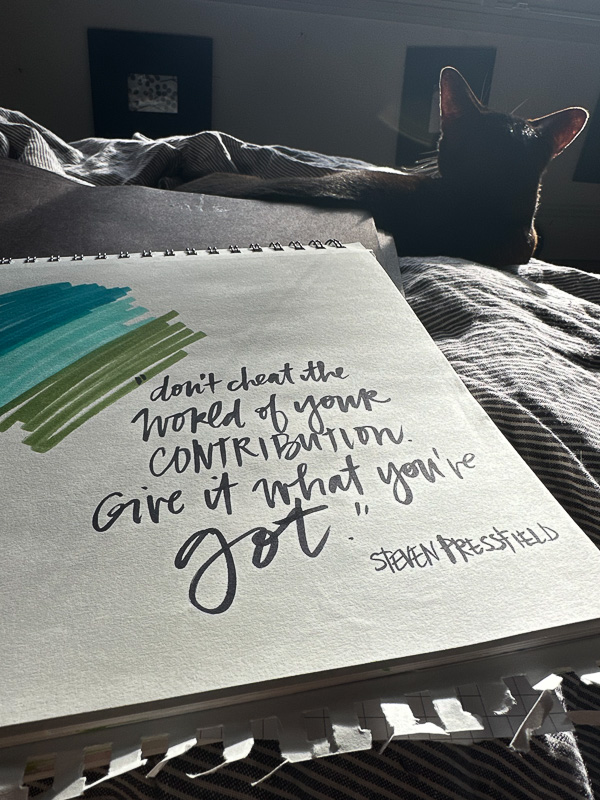 "don't cheat the
WORLD of your
CONTRIBUTION.
Give it what you've
got."
STEVEN PRESSFIELD